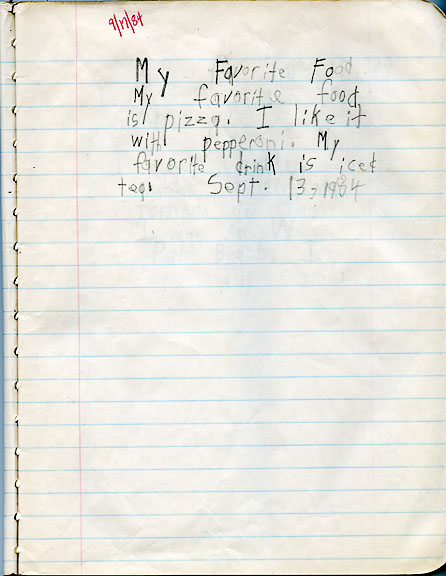 9/17/84
My Favorite Food
My favorite food
is pizza. I like it
with pepperoni. My
favorite drink is iced
tea. Sept. 13, 1984